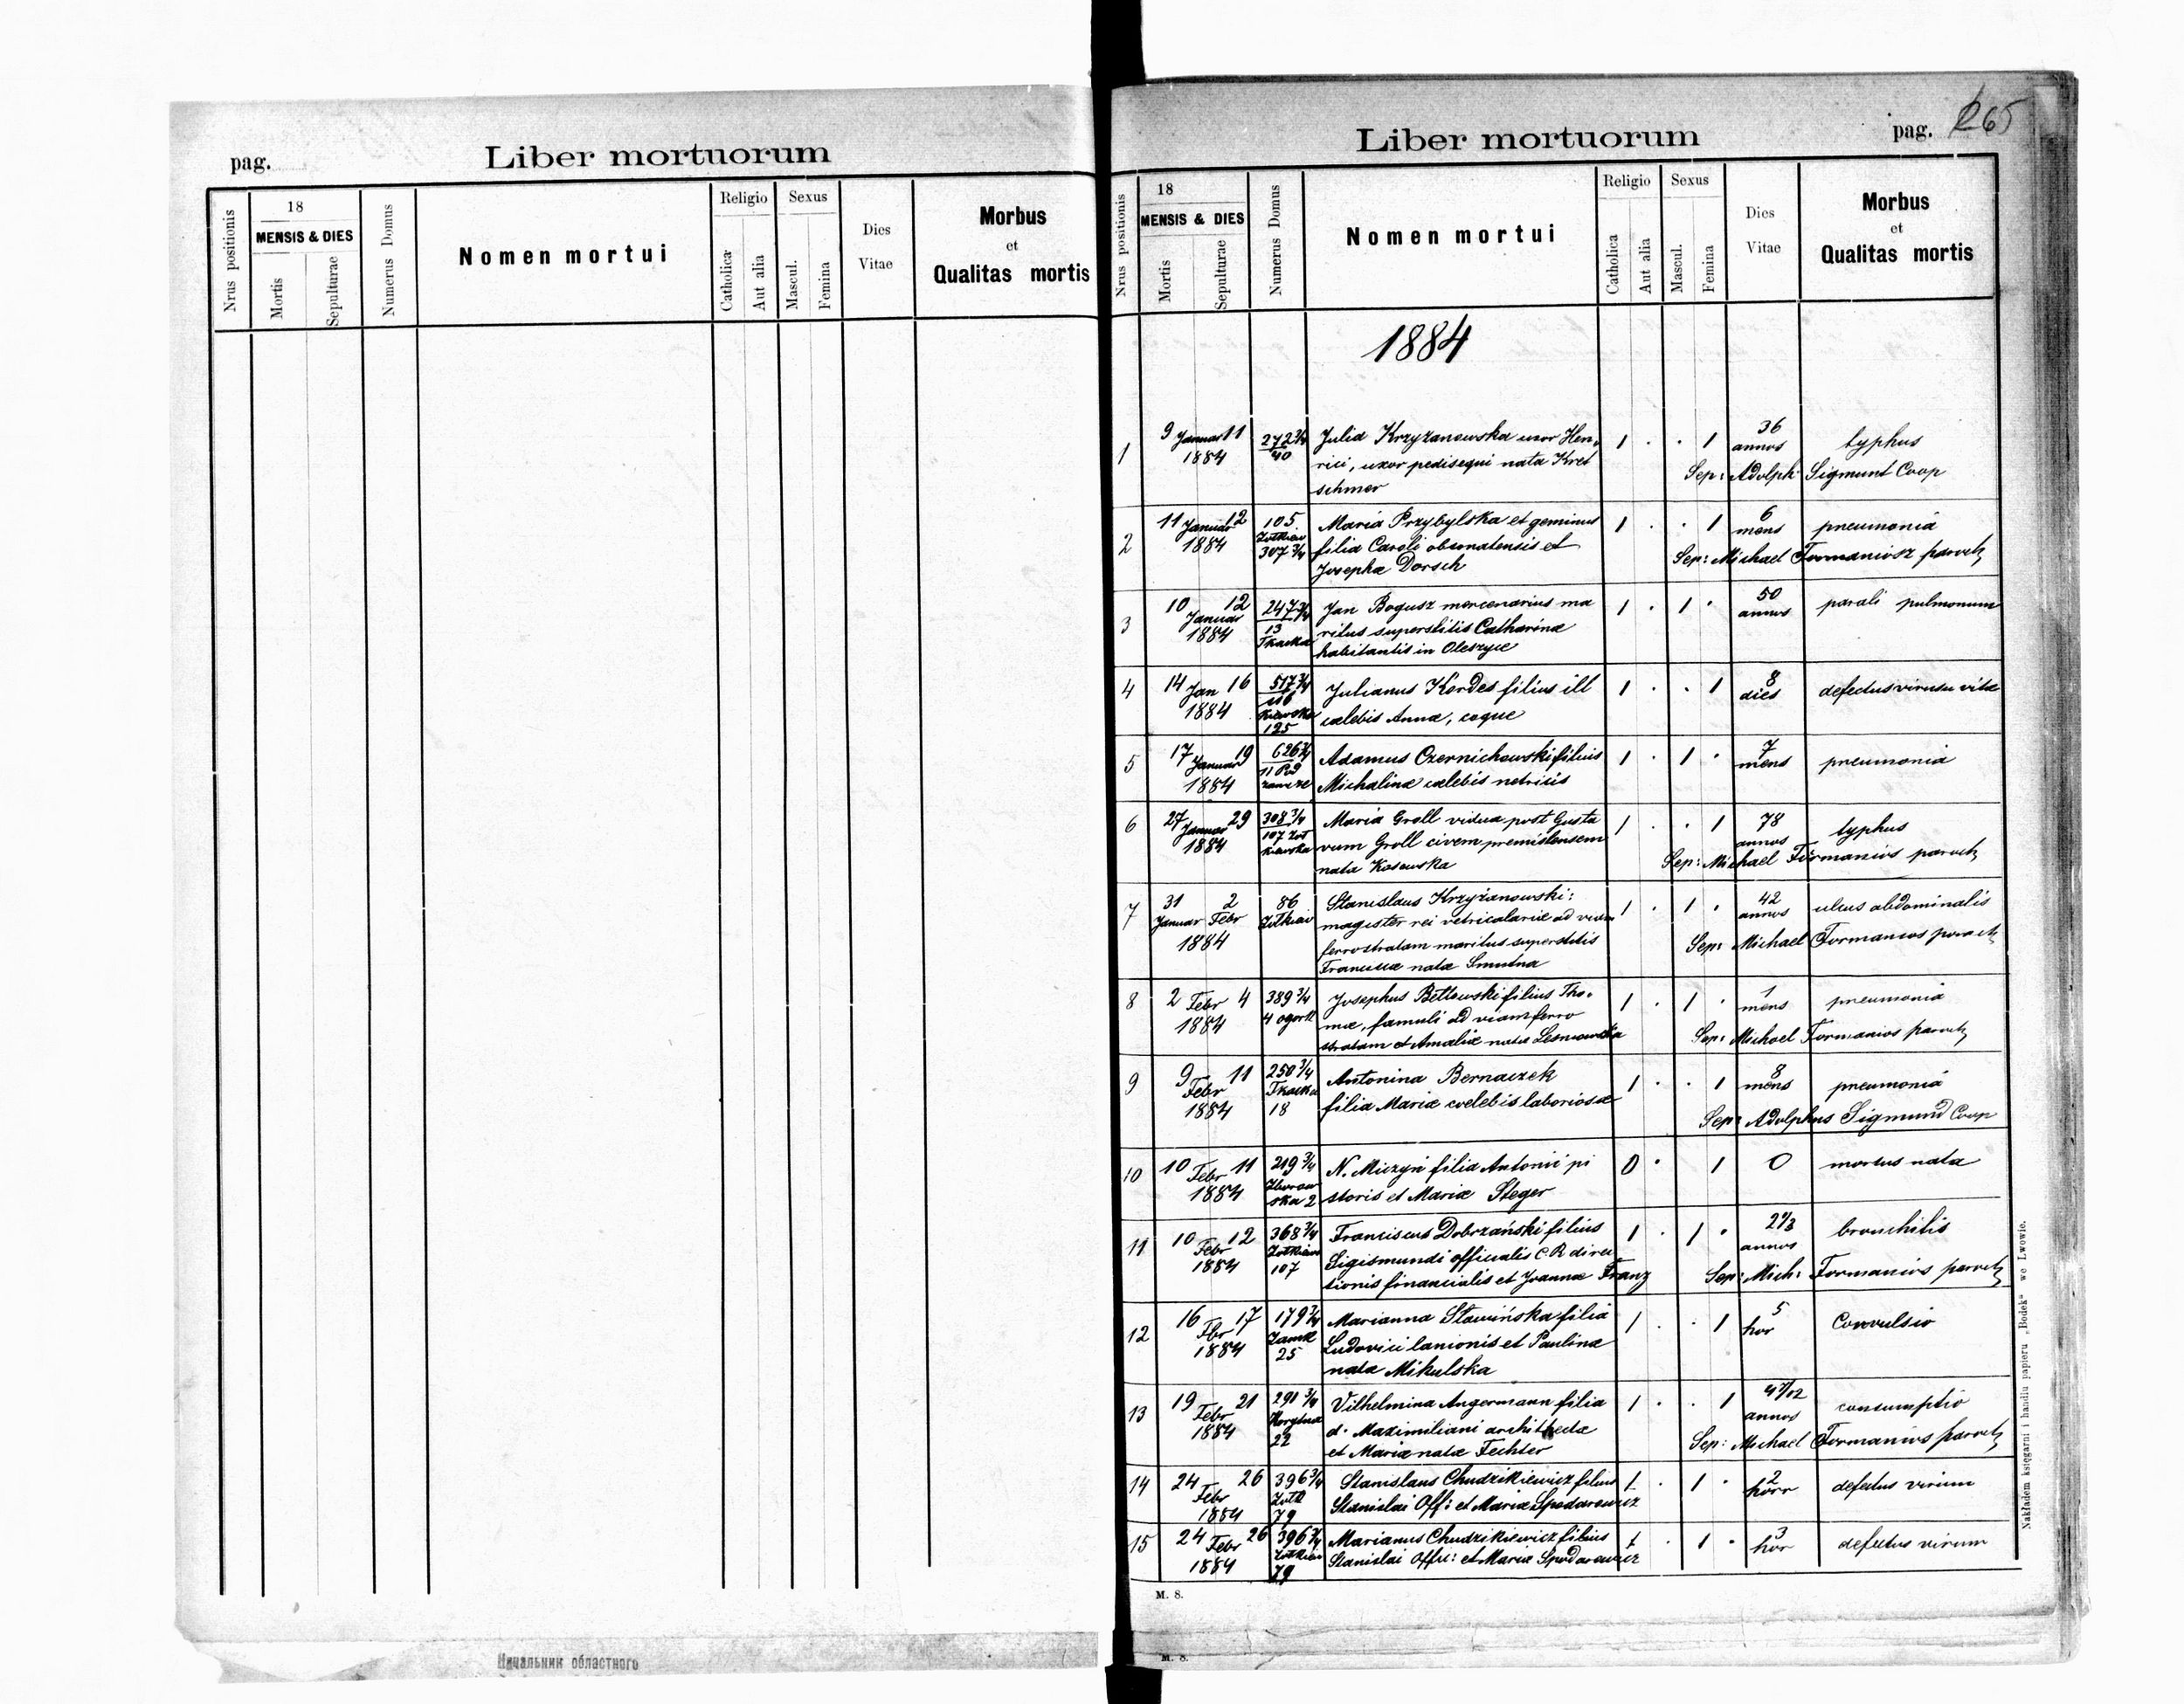 pag.
Liber mortuorum
Nrus positionis
18
MENSIS & DIES
Mortis
Sepulturae
Numerus Domus
Nomen mortui
Religio
Catholica
Aut alia
Sexus
Mascul.
Femina
Dies
Vitae
Morbus
et
Qualitas mortis
Начальник областного
Liber mortuorum
pag. 265
Nrus positionis
18
MENSIS & DIES
Mortis
Sepulturae
Numerus Domus
Nomen mortui
Religio
Catholica
Aut alia
Sexus
Mascul.
Femina
Dies
Vitae
Morbus
et
Qualitas mortis
1884
1
9 Januar 11
1884
272 3/4
40
Julia Krzyżanowska uxor Hen-
rici, uxor pedisequi nata Kret
schmer
1 . . 1
36
annos
typhus
Sep: Adolph Sigmunt Coop
2
11 Januar 12
1884
105.
Zotkiew
307 3/4
Maria Przybylska et geminus
filia Caroli obsonatensis et
Josepha Dorsch
1 . . 1
6
mens
pneumonia
Sep: Michael Formaniosz
3
10 12
Januar
1884
247 3/4
13
Tkacka
Jan Bogusz mercenarius ma
ritus superstitis Catharinæ
habitantis in Oleszyce
1 . 1 .
50
annos
parali pulmonum
4
14 Jan 16
1884
517 3/4
125
Julianus Kordes filius ill
cælebis Annæ, coquæ
1 . . 1
8
dies
defectus virium vitæ
5
17 Januar 19
1884
626 3/4
Adamus Czernichowski filius
Michalinæ cælebis nutricis
1 . 1 .
7
mens
pneumonia
6
27 Januar 29
1884
308 3/4
107 Zot
kiewska
Maria Groll vidua post Gusta
vum Groll civem premislensem
nata Kosowska
1 . . 1
78
annos
typhus
Sep: Michael Formanios
7
31 2
Januar Febr
1884
86
Zotkiew
Stanislaus Krzyżanowski:
magister rei vetricalariæ ad viam
ferrostratam maritus superstitis
nata Smutna
1 . 1 .
42
annos
ulcus abdominalis
Sep: Michael Formanios
8
2 Febr 4
1884
389 3/4
4 ogorK
Josephus Betlewski filius Tho-
mæ, famuli ad viam ferro
stratam et Amaliæ natæ Lesniowska
1 . 1 .
1
mens
pneumonia
Sep: Michael Formanios
9
9 11
Febr
1884
250 3/4
Tkacka
18
Antonina Bernaczek
filia Mariæ cælebis laboriosæ
1 . . 1
8
mens
pneumonia
Sep: Adolphus Sigmund Coop
10
10 Febr 11
1884
219 3/4
Zborow
ska 2
N. Miczyń filia Antonii pi
storis et Mariæ Steger
0 . 1
0
mortus nata
11
10 12
Febr
1884
368 3/4
Zotkiew
107
Franciscus Dobrzański filius
Sigismundi officialis C.R direc
tionis financialis et Joannæ Franz
1 . 1 .
2 1/3
annos
bronchitis
Sep: Mich: Formanios
12
16 17
Fbr
1884
179 3/4
Zamk
25
Marianna Stawińska filia
Ludovici lanionis et Paulinæ
nata Mikulska
1 . . 1
5
hor
Convulsio
13
19 21
Febr
1884
291 3/4
22
Vilhelmina Angermann filia
d. Maximiliani architectæ
et Maria nata Fechter
1 . . 1
4 7/12
annos
consumptio
Sep: Michael Formanios
14
24 26
Febr
1884
396 3/4
Zotk
79
Stanislaus Chudzikiewicz filius
Stanislai Off: et Mariæ Spodarowicz
1 . 1 .
2
horr
defectus virium
15
24 Febr 26
1884
396 3/4
Zotkiew
79
Marianus Chudzikiewicz filius
Stanislai Offic: et Mariæ Spodarowicz
1 . 1 .
3
hor
defectus virium
M. 8.
M. 8.
Nakładem księgarni i handlu papieru „Bodek“ we Lwowie.